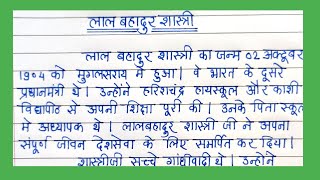 लाल बहादुर शास्त्री
लाल बहादुर शास्त्री का जन्म 02 अक्टूबर
1904 को मुगलसराय मे हुआ। वे भारत के दूसरे
प्रधानमंत्री थे। उन्होंने हरिशचंद्र हायस्कूल और काशी
विद्यापीठ से अपनी शिक्षा पूरी की। उनके पिता स्कूल
मे अध्यापक थे। लालबहादुर शास्त्री जी ने अपना
संपूर्ण जीवन देशसेवा के लिए समर्पित कर दिया।
शास्त्रीजी सच्चे गांधीवादी थे। उन्होने